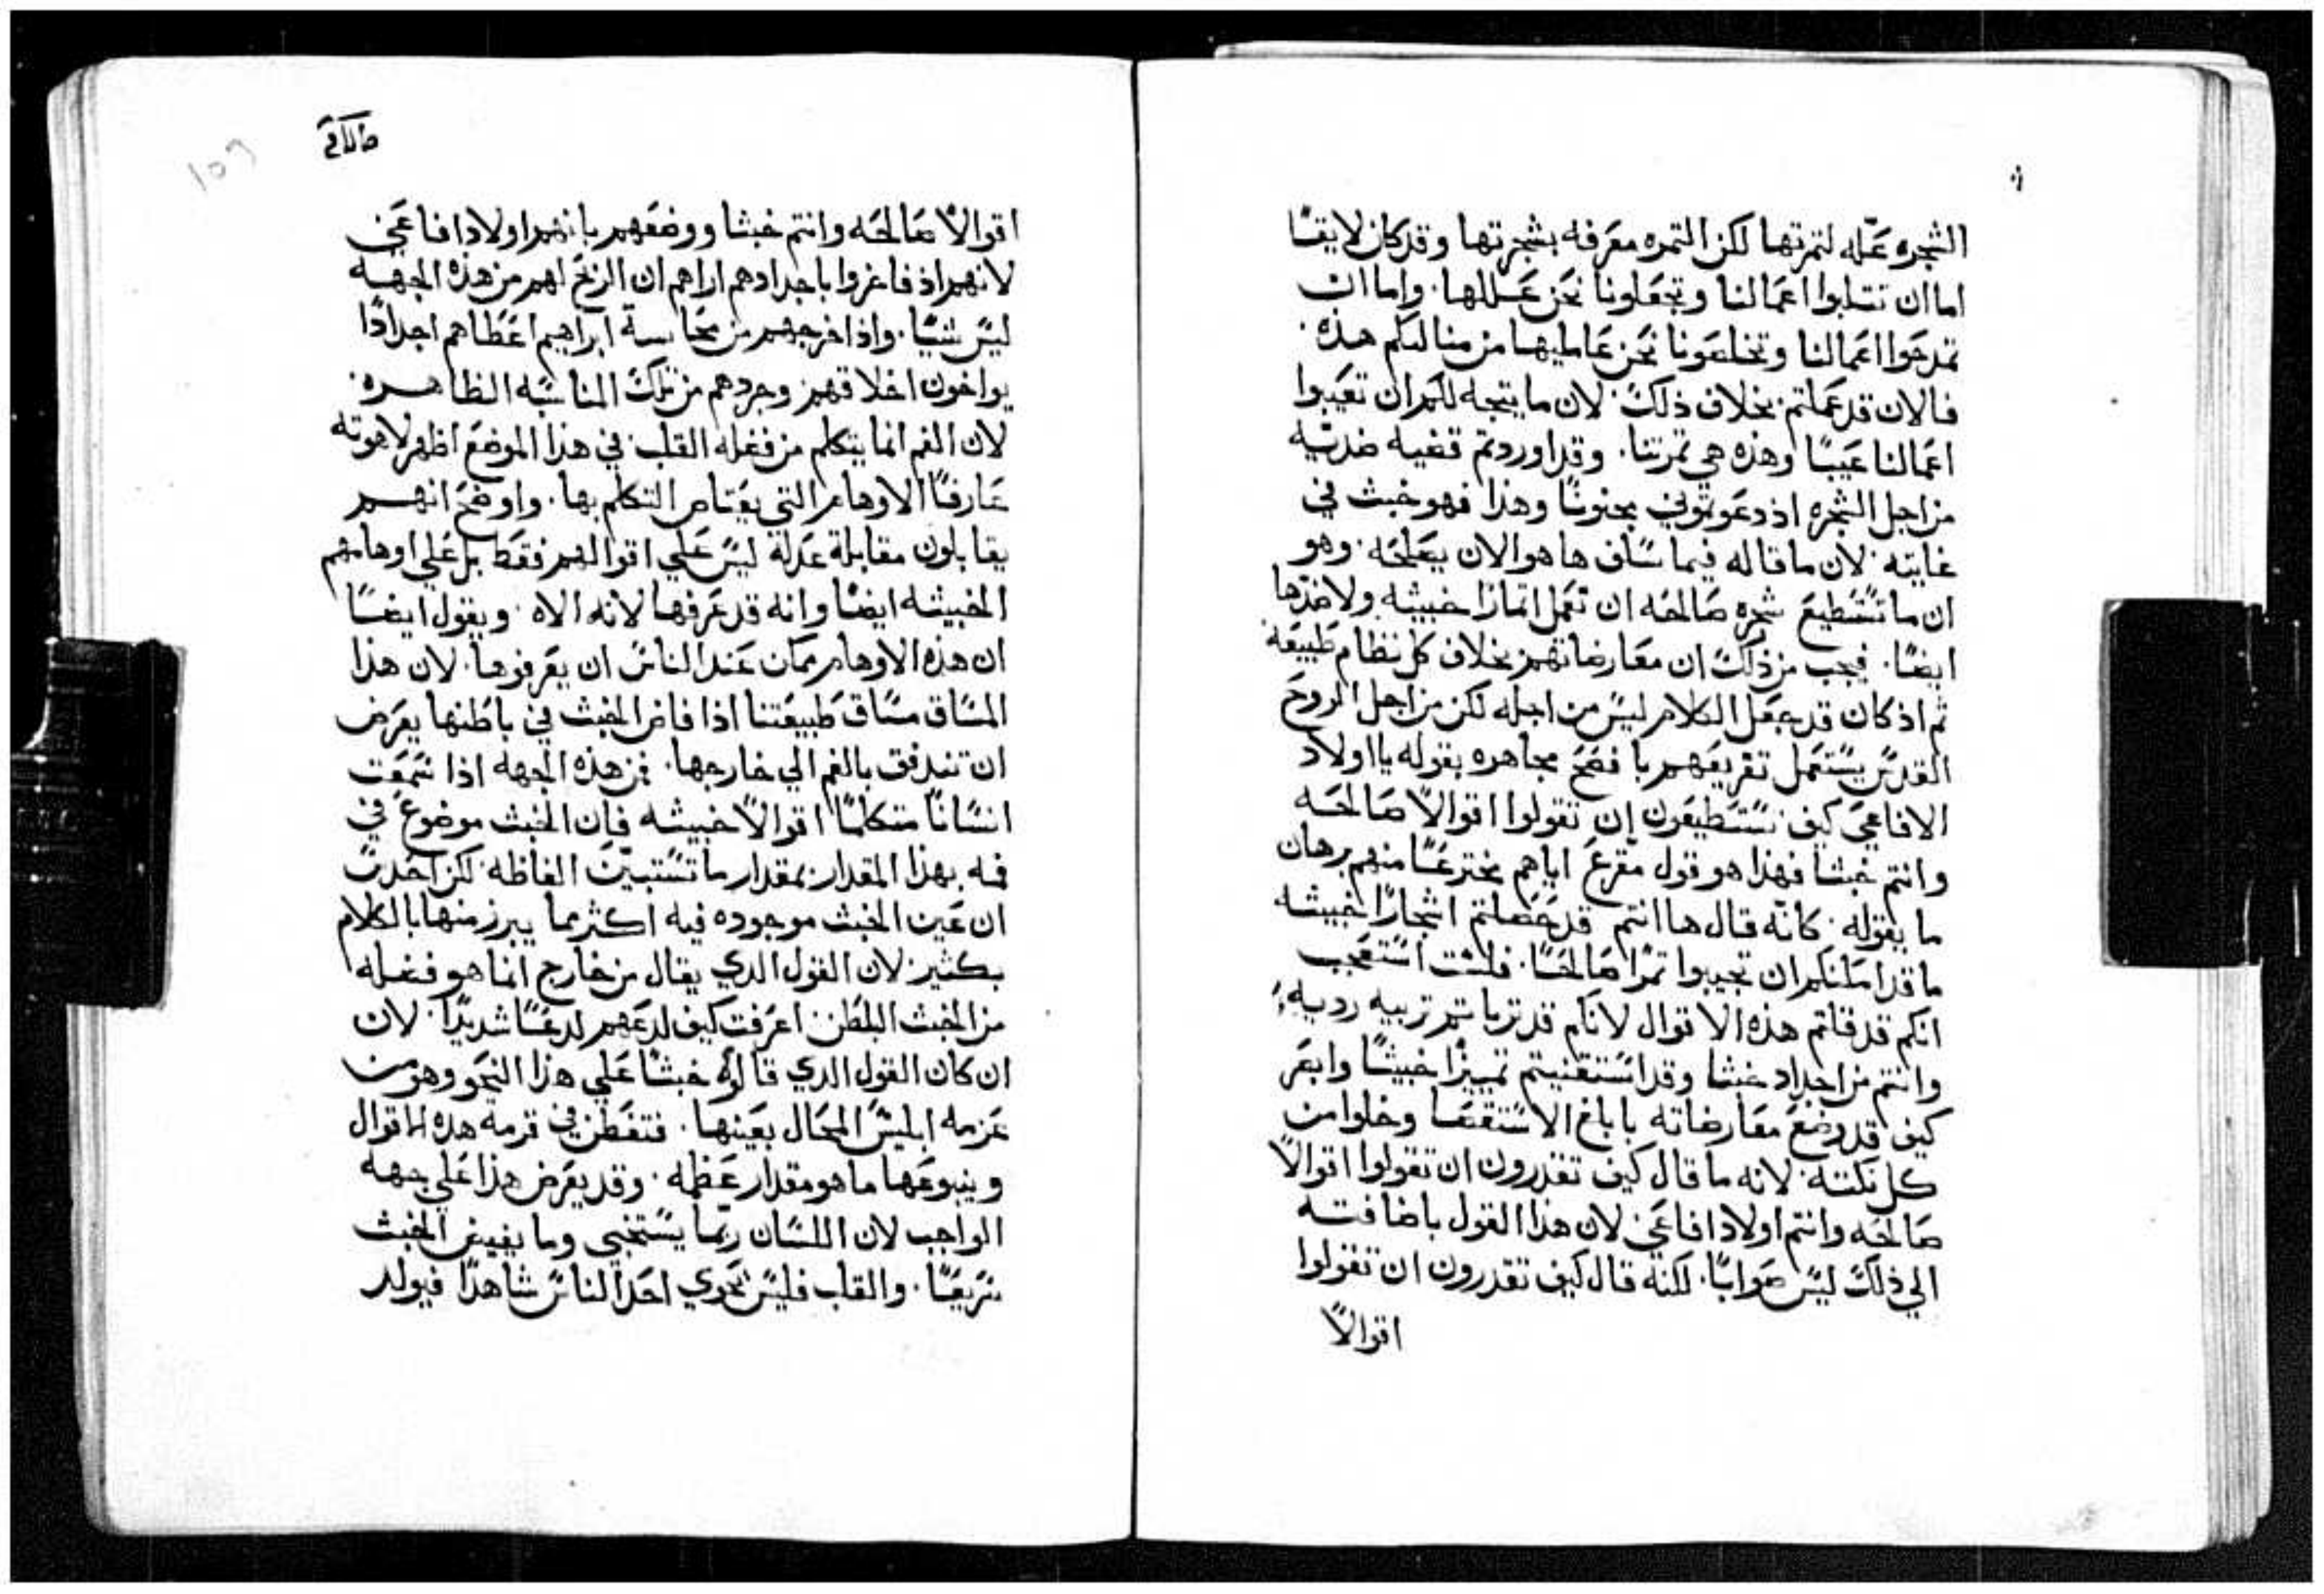 الشجره عله لتمرتها لكن التمره معرفه بشجرتها وقد كان لايقًا
اما ان تتلبوا اعمالنا وتجعلونا نحن عللها. واما ان
تمدحوا اعمالنا وتخلعونا نحن عامليها من مثالبكم هذه.
فالان قد عملتم بخلاف ذلك. لان ما يتجه لكم ان تعيبوا
اعمالنا عيبًا وهذه هي تمرتنا. وقد اوردتم قضيه ضديه
من اجل الشجره اذ دعوتموني مجنونًا وهذا فهو خبث في
غايته. لان ما قاله فيما سلف ها هو الان يصلحه. وهو
ان ما تستطيع شجره صالحه ان تعمل اتمارًا خبيثه ولا ضدها
ايضًا. فيجب من ذلك ان معارضاتهم بخلاف كل نظام طبيعه
ثم اذ كان قد جعل الكلام ليس من اجله لكن من اجل الروح
القدس يستعمل تقريعهم بافضح مجاهره بقوله يا اولاد
الافاعي كيف تستطيعون ان تقولوا اقوالًا صالحه
وانتم خبثا فهذا هو قول مقرع اياهم مخترعًا منهم برهان
ما يقوله. كانه قال ها انتم قد حصلتم اشجارًا خبيثه
ما قد امكنكم ان تجيبوا تمرًا صالحًا. فلست استعجب
انكم قد قلتم هذه الاقوال لانكم قد تربيتم تربيه رديه
وانتم من اجداد خبثا وقد استقنيتم تمييزًا خبيثًا وابصر
كيف قد وضع معارضاته بابلغ الاستقصا وخلوا من
كل نكته. لانه ما قال كيف تقدرون ان تقولوا اقوالًا
صالحه وانتم اولاد افاعي لان هذا القول باضافته
الي ذلك ليس صوابًا. لكنه قال كيف تقدرون ان تقولوا
اقوالًا
اقوالًا صالحه وانتم خبثا ووضعهم بانهم اولاد افاعي
لانهم اذ فاخروا باجدادهم اراهم ان الربح لهم من هذه الجهه
ليس شيًا. واذ اخرجهم من مجانسة ابراهيم اعطاهم اجدادًا
يواخون اخلاقهم وجردهم من تلك المناسبه الظاهره.
لان الفم انما يتكلم من فضله القلب في هذا الموضع اظهر لاهوته
عارفًا الاوهام التي يعتاص التكلم بها. واوضح انهم
يقابلون مقابلة عدله ليس علي اقوالهم فقط بل علي اوهامهم
الخبيثه ايضًا وانه قد عرفها لانه الاه. ويقول ايضًا
ان هذه الاوهام ممكن عند الناس ان يعرفوها. لان هذا
المساق مساق طبيعتنا اذا فاض الخبث في باطنها يعرض
ان تندفق بالفم الي خارجها. فمن هذه الجهه اذا سمعت
انسانًا متكلمًا اقوالًا خبيثه فان الخبث موضوع في
فمه بهذا المقدار بمقدار ما تستبين الفاظه لكن احدث
ان عين الخبث موجوده فيه اكثر مما يبرز منها بالكلام
بكثير. لان القول الدي يقال من خارج انما هو فضله
من الخبث البلطن اعرفت كيف لدعهم لدعًا شديدًا. لان
ان كان القول الدي قالوه خبثًا علي هذا النحو وهو من
عزمه ابليس المحال بعينها. فتفطن في قرمة هده الاقوال
وينبوعها ما هو مقدار عظمه. وقد يعرض هذا علي جهه
الواجب لان اللسان ربما يستخبي وما يفيض الخبث
سريعًا. والقلب فليس يحوي احد الناس شاهدًا فيولد